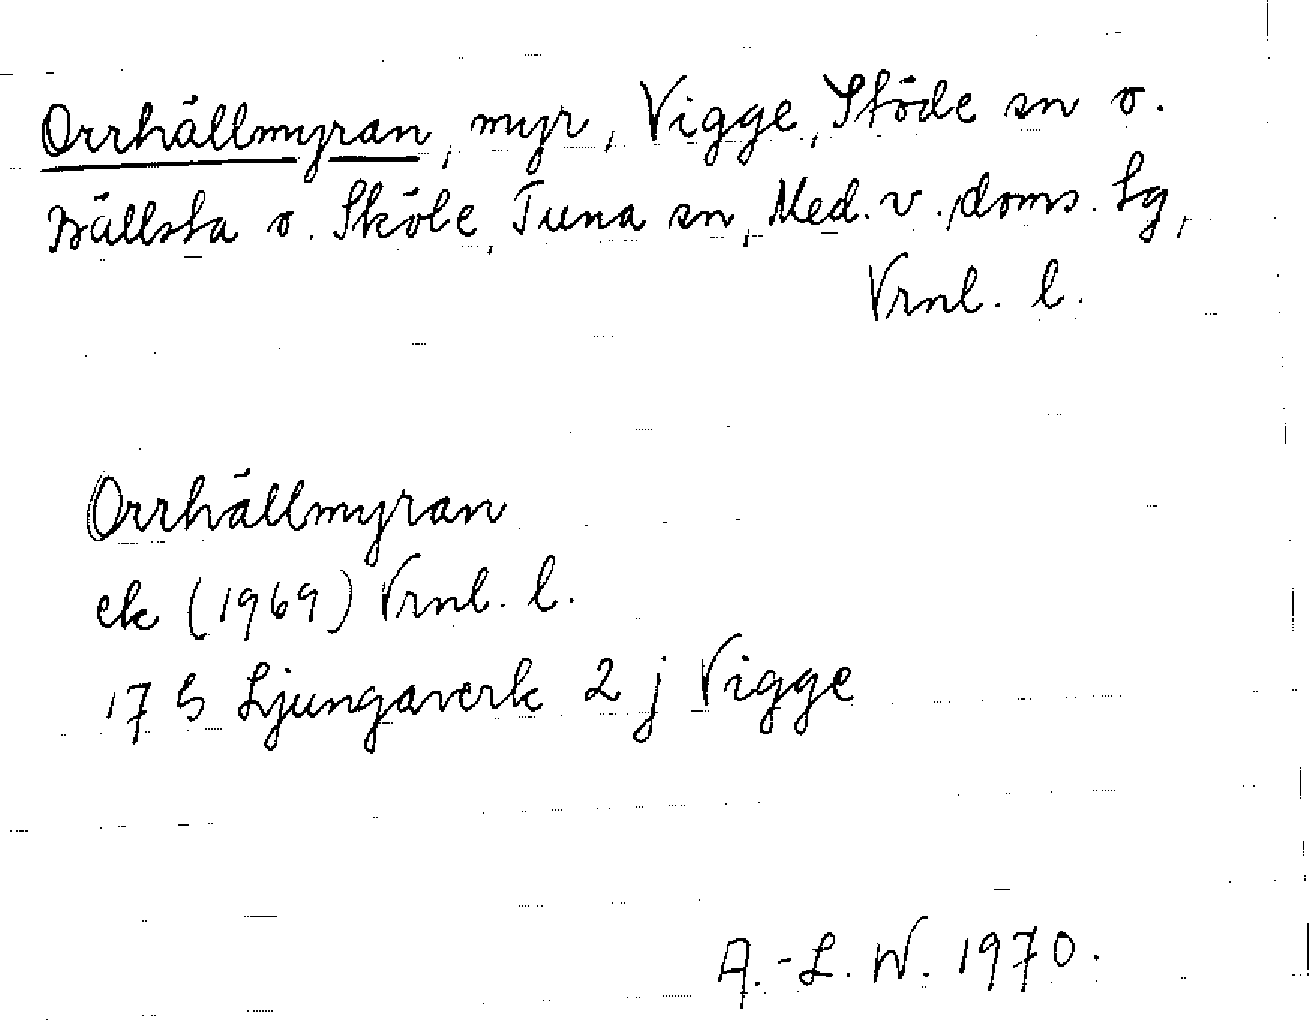 Orrhällmyran, myr, Vigge, Stöde sn o.
Bällsta o. Sköle, Tuna sn, Med. v. doms. Lg,
Vrnl. l.
Orrhällmyran
ek (1969) Vrnl. l.
17 G Ljungaverk 2 j Vigge
A.-L. W. 1970.